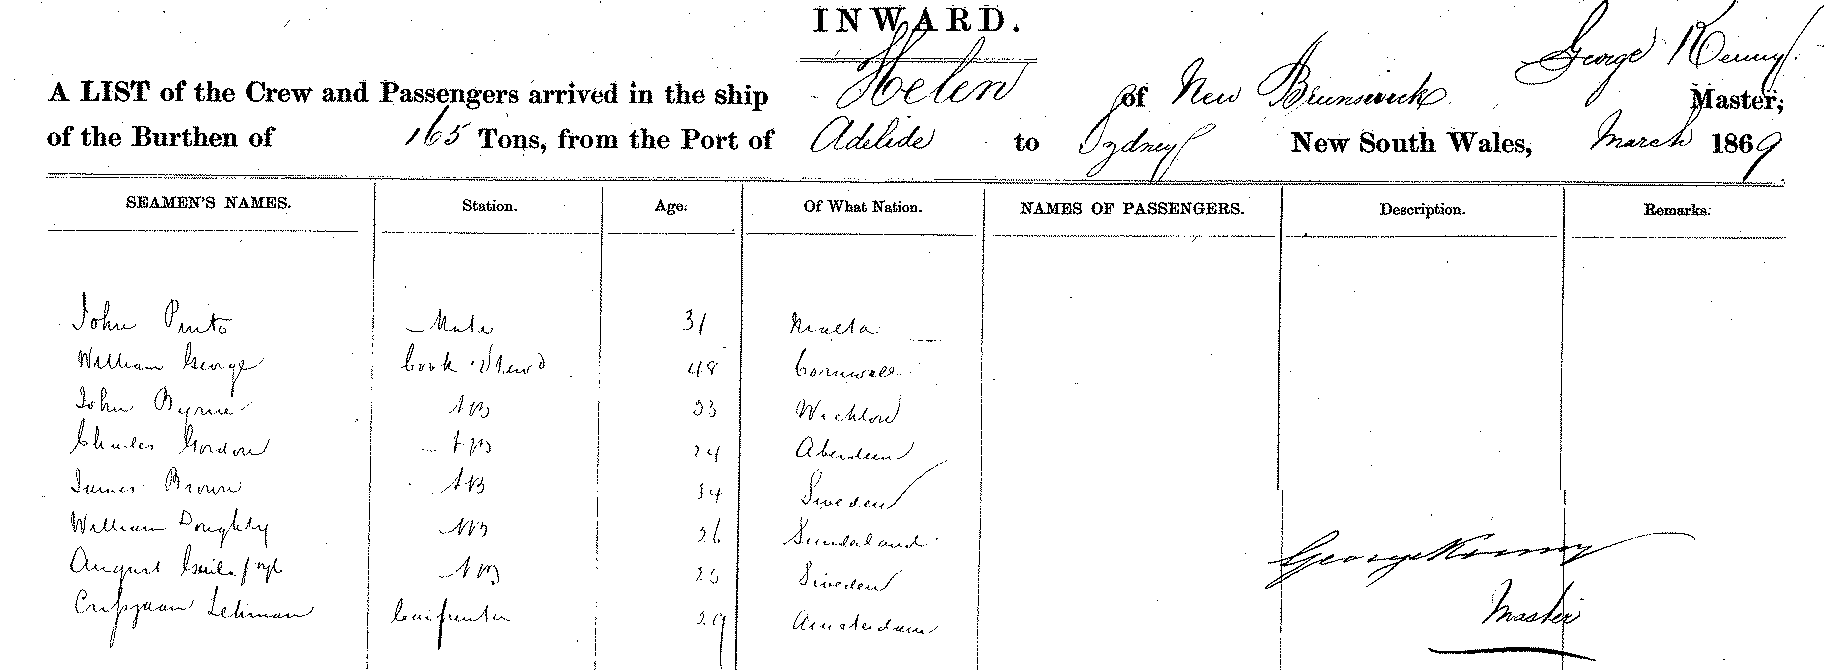 INWARD.
George Kenny
A LIST of the Crew and Passengers arrived in the ship Helen of New Brunswick Master,
of the Burthen of 165 Tons, from the Port of Adelide to Sydney New South Wales, March 1869
SEAMEN'S NAMES. Station. Age. Of What Nation. NAMES OF PASSENGERS. Description. Remarks.
John Pinto Mate 31 Malta
William George Cook & Stewd 48 Cornwall
John Byrne AB 23 Wicklow
Charles Gordon AB 24 Aberdeen
James Brown AB 34 Sweden
William Doughty AB 26 Sundaland
August AB 25 Sweden
George Kenny
Lehman Carpenter 29 Amsterdam
Master